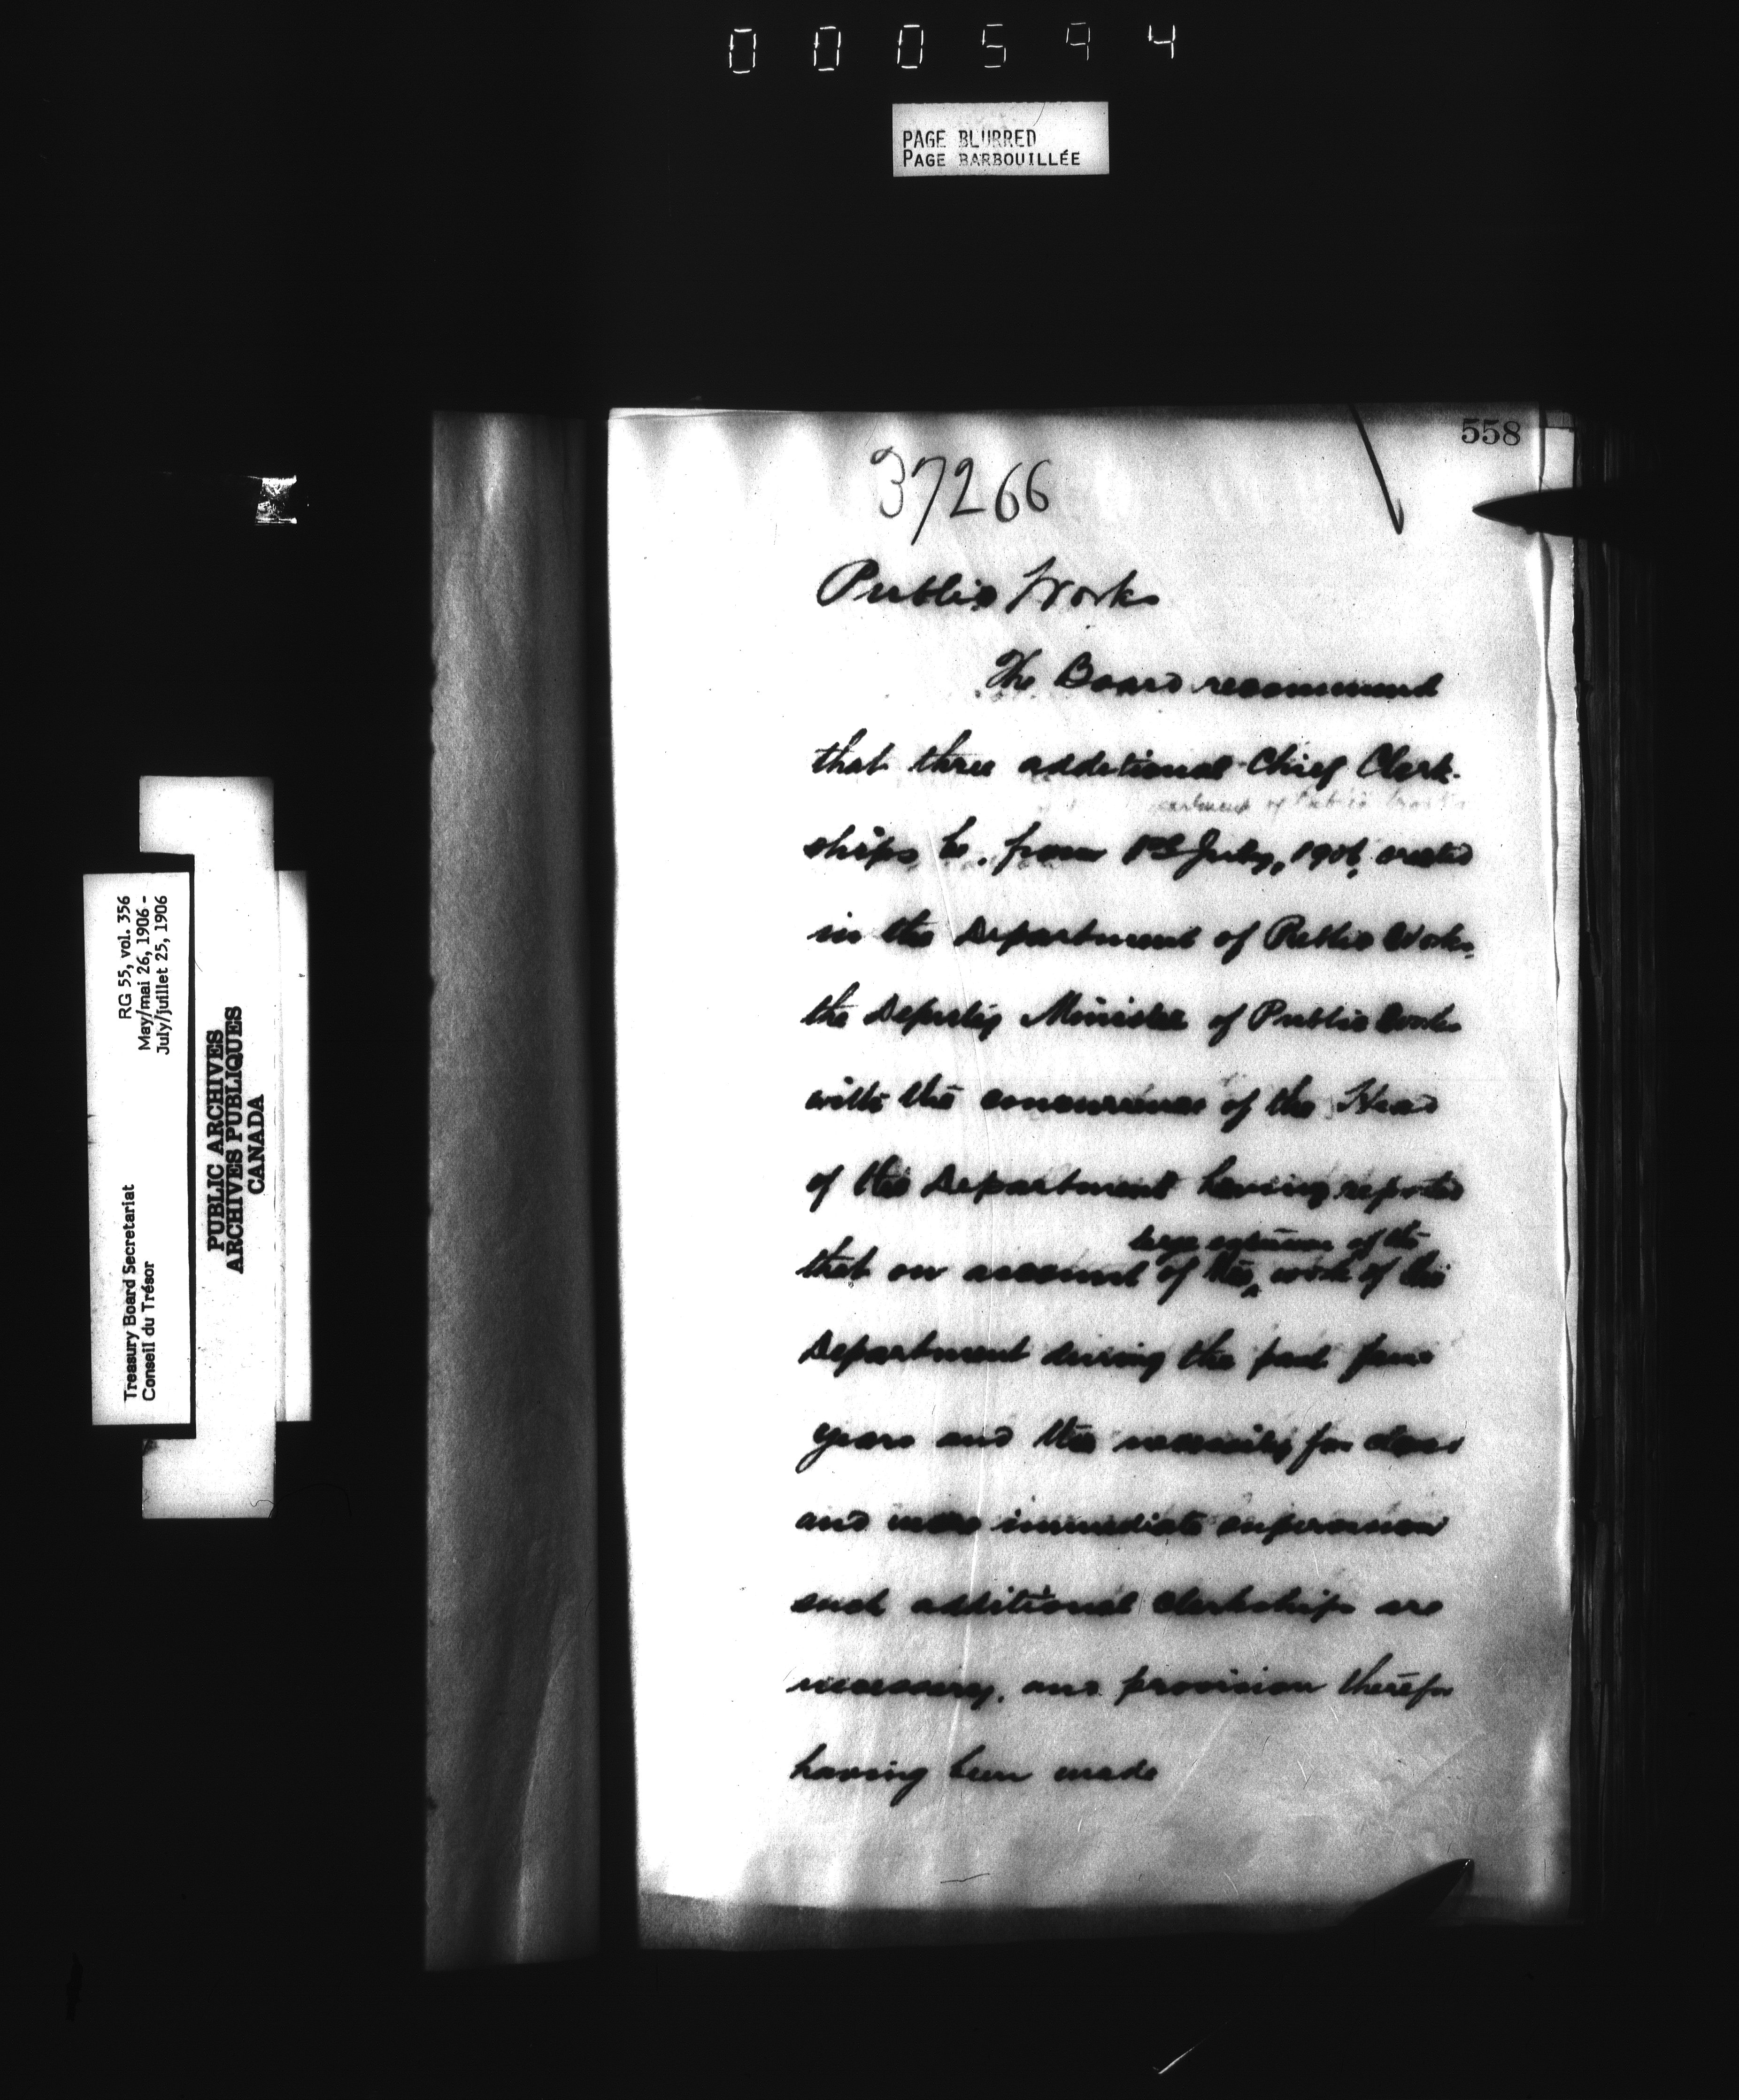 000594
PAGE BLURRED
PAGE BARBOUILLÉE
558
37266
Public Works
The Board recommend
that three additional Chief Clerk-
ships be, from 1st July, 1906, created
in the Department of Public Works,
the Deputy Minister of Public Works
with the concurrence of the Head
of the Department having reported
large of the
that on account of the work of the
Department during the past few
years and the necessity for closer
and more immediate supervision
such additional clerkships are
necessary, and provision therefor
having been made
RG 55, vol. 356
May/mai 26, 1906 -
July/juillet 25, 1906
Treasury Board Secretariat
Conseil du Trésor
PUBLIC ARCHIVES
ARCHIVES PUBLIQUES
CANADA